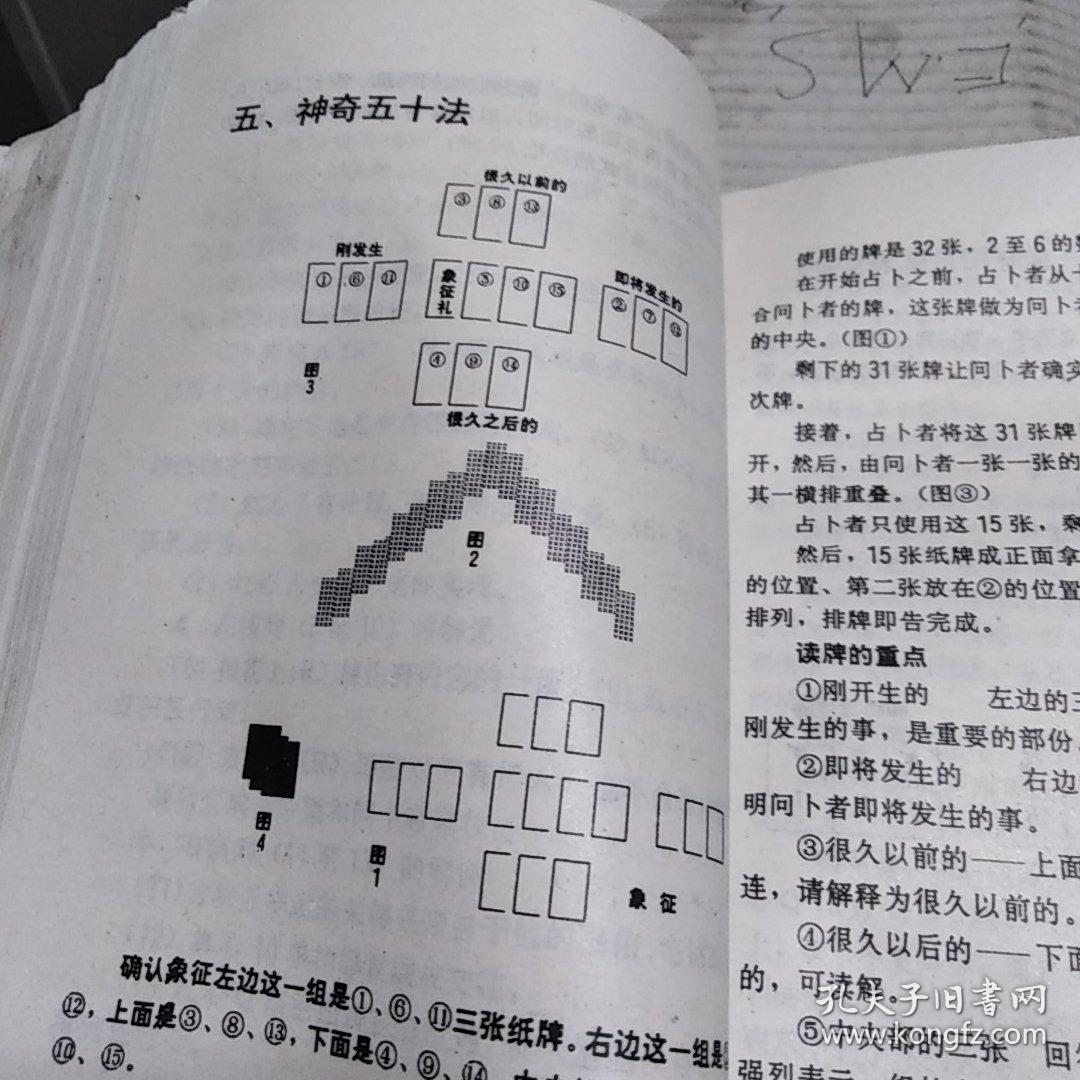 S.W.コ
五、神奇五十法
很久以前的
③ ⑧ ⑬
刚发生
① ⑥ ⑪
象征礼 ⑤ ⑩ ⑮
即将发生的
② ⑦ ⑫
图3
④ ⑨ ⑭
很久之后的
图2
图4
图1
象 征
确认象征左边这一组是①、⑥、⑪三张纸牌。右边这一组是
⑫,上面是③、⑧、⑬,下面是④、⑨、⑭,
⑩、⑮。
使用的牌是 32 张,2 至 6 的
在开始占卜之前,占卜者从
合问卜者的牌,这张牌做为问卜者
的中央。(图①)
剩下的 31 张牌让问卜者确实
次牌。
接着,占卜者将这 31 张牌
开,然后,由问卜者一张一张的
其一横排重叠。(图③)
占卜者只使用这 15 张,剩
然后,15 张纸牌成正面拿
的位置、第二张放在②的位置
排列,排牌即告完成。
读牌的重点
①刚开生的 左边的三
刚发生的事,是重要的部份
②即将发生的 右边
明问卜者即将发生的事。
③很久以前的——上面
连,请解释为很久以前的。
④很久以后的——下面
的,可读解。
⑤中央部的三张 回
强列表示
孔夫子旧书网
www.kongfz.com